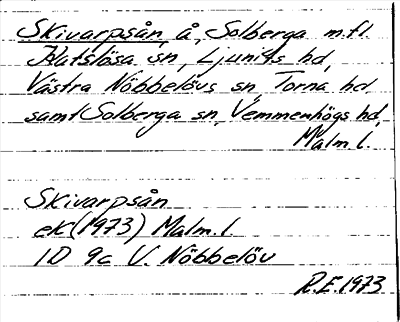 Skivarpsån, å, Solberga m.fl.
Katslösa sn, Ljunits hd,
Västra Nöbbelövs sn, Torna hd
samt Solberga sn, Vemmenhögs hd,
Malm. l.
Skivarpsån
ek (1973) Malm. l
1D 9c V. Nöbbelöv
R.E. 1973